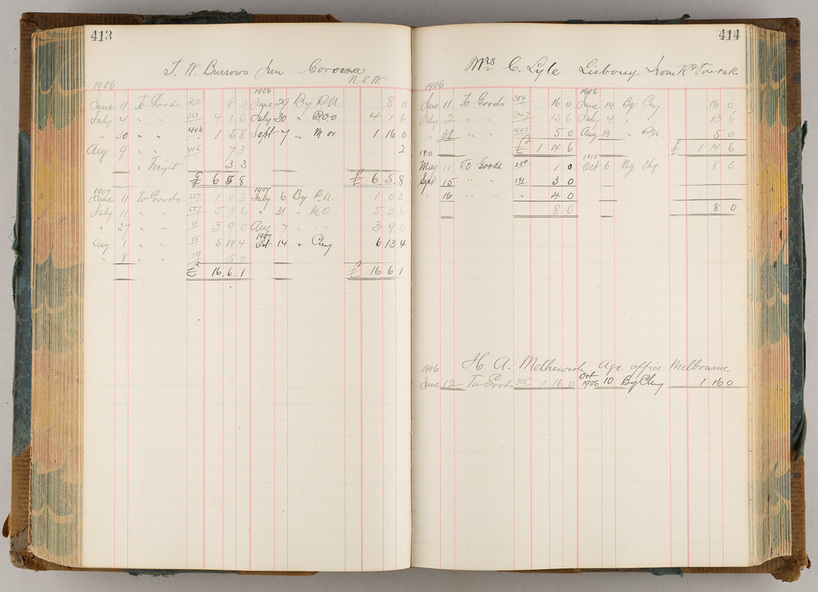 413
T. W. Burrows Jun Corowa
N.S.W.
1906
1906
June 11 To Goods 8 3 June 29 By P.N. 8 0
July 4 " " 351 4 1 6 July 30 " P.O.O 4 1 6
" 30 " " 406 1 5 8 Sept 7 " M or 1 16 0
Aug 9 " " 416 7 3 2
" Freight 3 3
£ 6 5 8 £ 6 5 8
1907 1907
June 11 To Goods 1 0 3 July 6 By P.N. 1 0 3
July 11 " " 5 5 6 " 31 " M.O 5 5 6
" 27 " " 11 3 9 0 Aug 7 " " 3 9 0
Aug 1 " " 15 5 18 4 Oct 14 " Chq 6 13 4
" 8 " " 19 15 0
£ 16 6 1 £ 16 6 1
414
Mrs C. Lyle Lisbony Irving Rd Toorak
1906 1906
June 11 To Goods 314 16 0 June 14 By Chq 16 0
July 2 " " 347 13 6 July 4 " " 13 6
" 31 " " 403 5 0 Aug 13 " P.N. 5 0
£ 1 14 6 £ 1 14 6
1910 1910
May 11 To Goods 250 1 0 Oct 6 By Chq 8 0
Sept 15 " " 191 3 0
" 16 " " " 4 0
8 0 8 0
1906 H. A. Age office Melbourne
June 12 To Goods 315 1 16 0 Oct 1906 10 By Chq 1 16 0